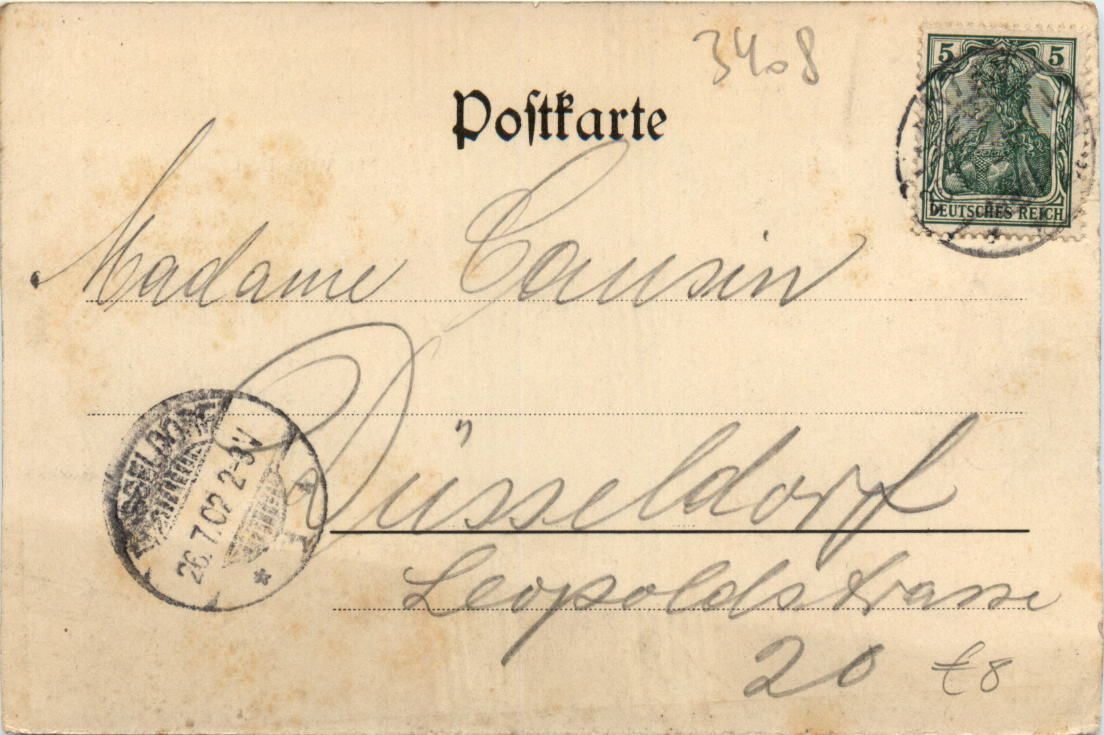 3408
5 5
DEUTSCHES REICH
Postkarte
Madame Causin
DÜSSELDORF
26.7.02 2-3V
Düsseldorf
Leopoldstrasse
20
€8